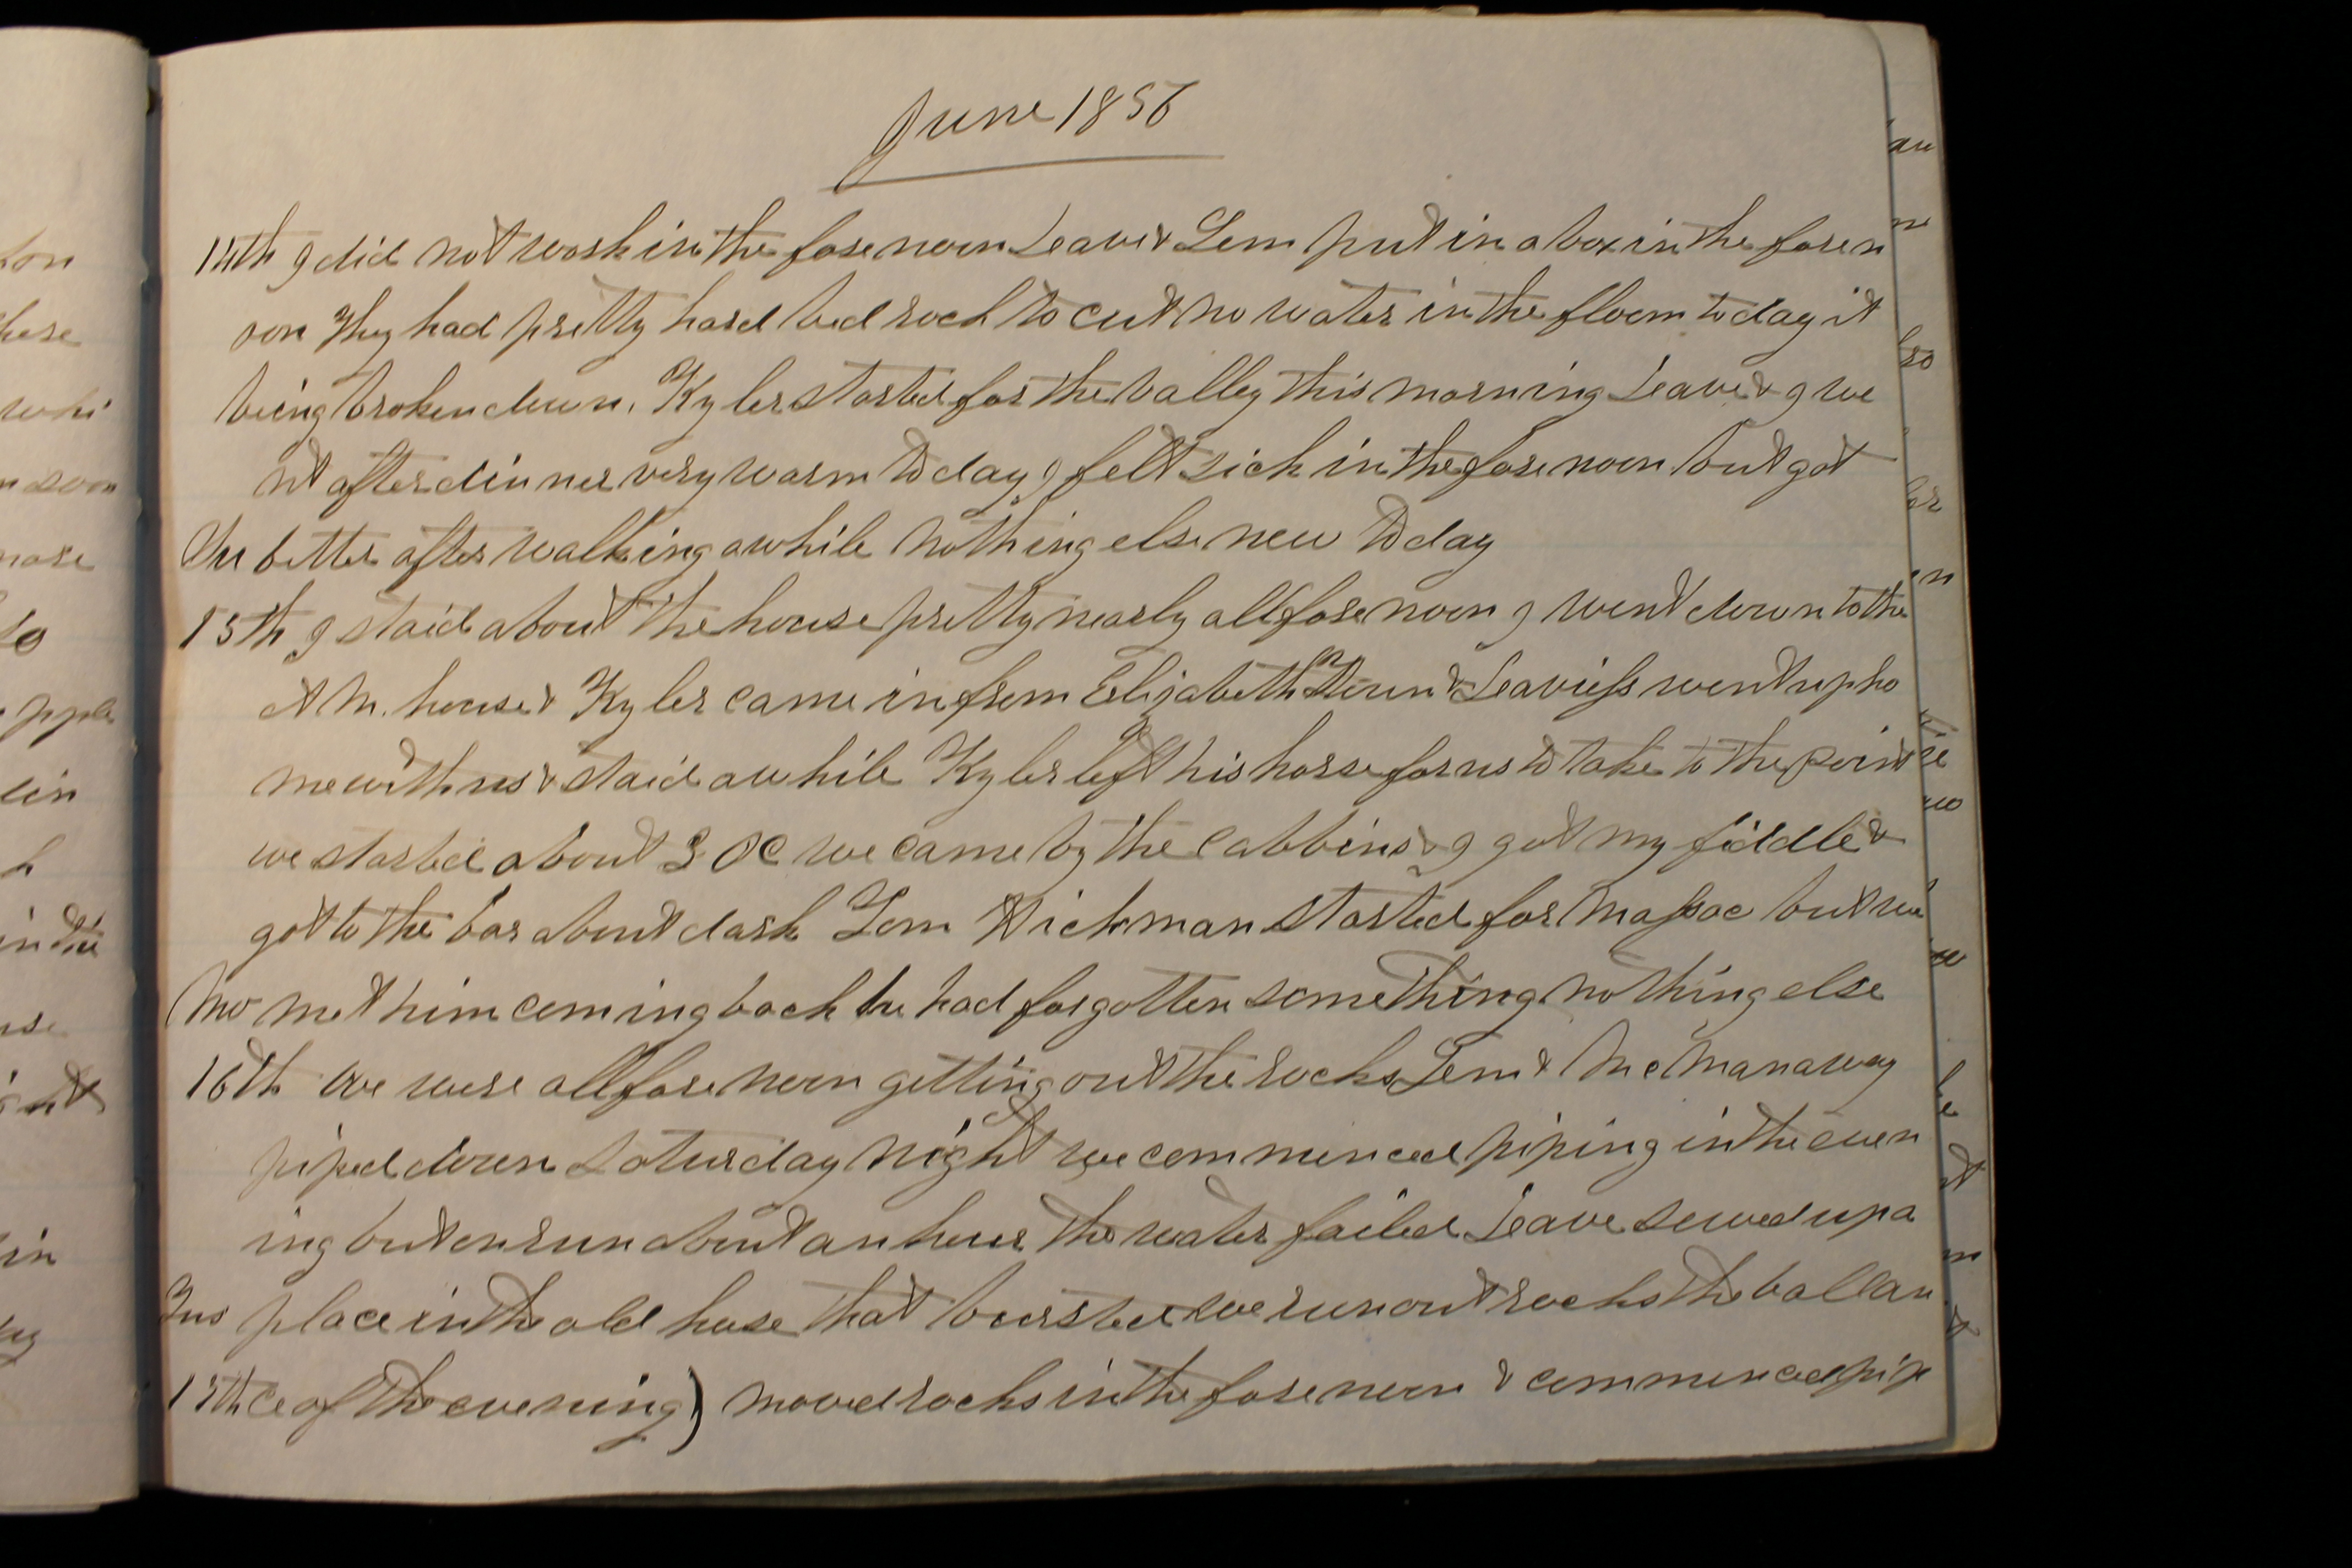 June 1856
14th I did not work in the fore noon Leave & Lem put in a box in the foren
oon They had pretty hard bed rock to cut no water in the floom to day it
being broken down. Kyler started for the valley this morning Leave & I we
nt after dinner very warm to day I felt sick in the fore noon but got
Su better after walking awhile nothing else new to day
15th I staid about the house pretty nearly all fore noon I went down to the
A M. house & Kyler came in from Elizabeth Town & Leaviess went up ho
me with us & staid awhile Kyler left his horse for us to take to the point
we started about 3 OC we came by the cabbins & I got my fiddle &
got to the bar about dark Lem Wickman started for Massac but we
Mo met him coming back he had forgotten something nothing else
16th We were all fore noon getting out the rocks Lem & McManaway
piped down Saturday night we commenced piping in the even
ing but on run about an hour the water failed Leave sewed up a
Tus place in the old hose that bursted we run out rocks the ballan
17th ce of the evening) moved rocks in the fore noon & commenced pip